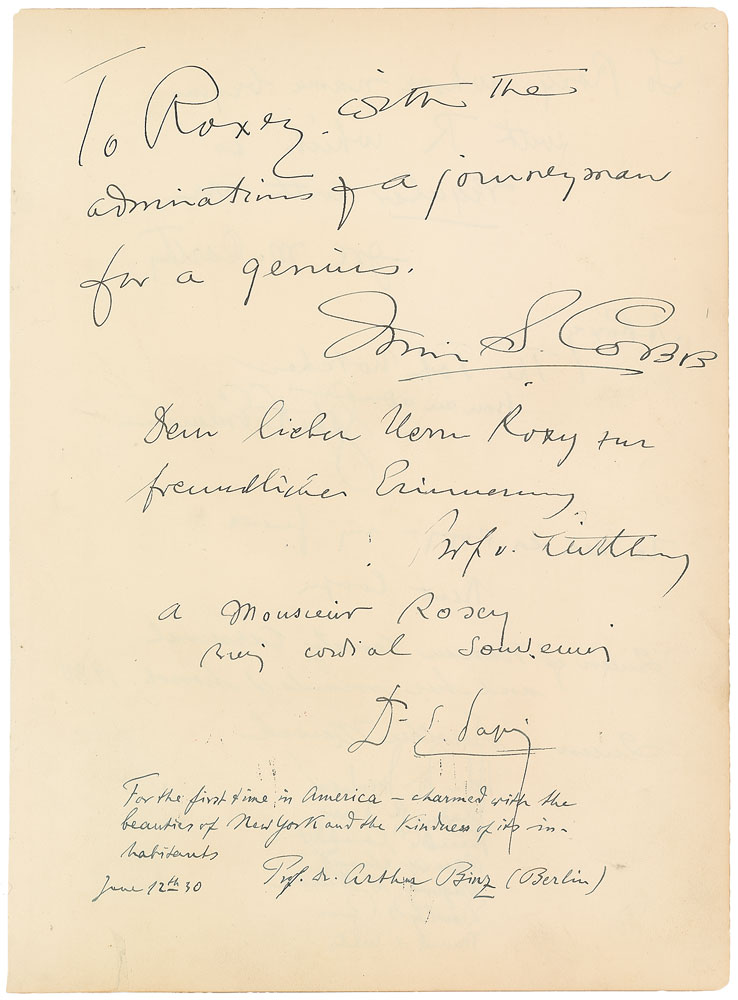 To Roxey with the
admirations of a journeyman
for a genius.
Irvin S Cobb
Dem lieben Herrn Roxy zur
freundlichen Erinnerung
Prof. v.
A Monsieur Roxey
cordial souvenir
Dr
For the first time in America – charmed with the
beauties of New York and the kindness of its in-
habitants
June 12th 30 Prof. Dr. Arthur Binz (Berlin)